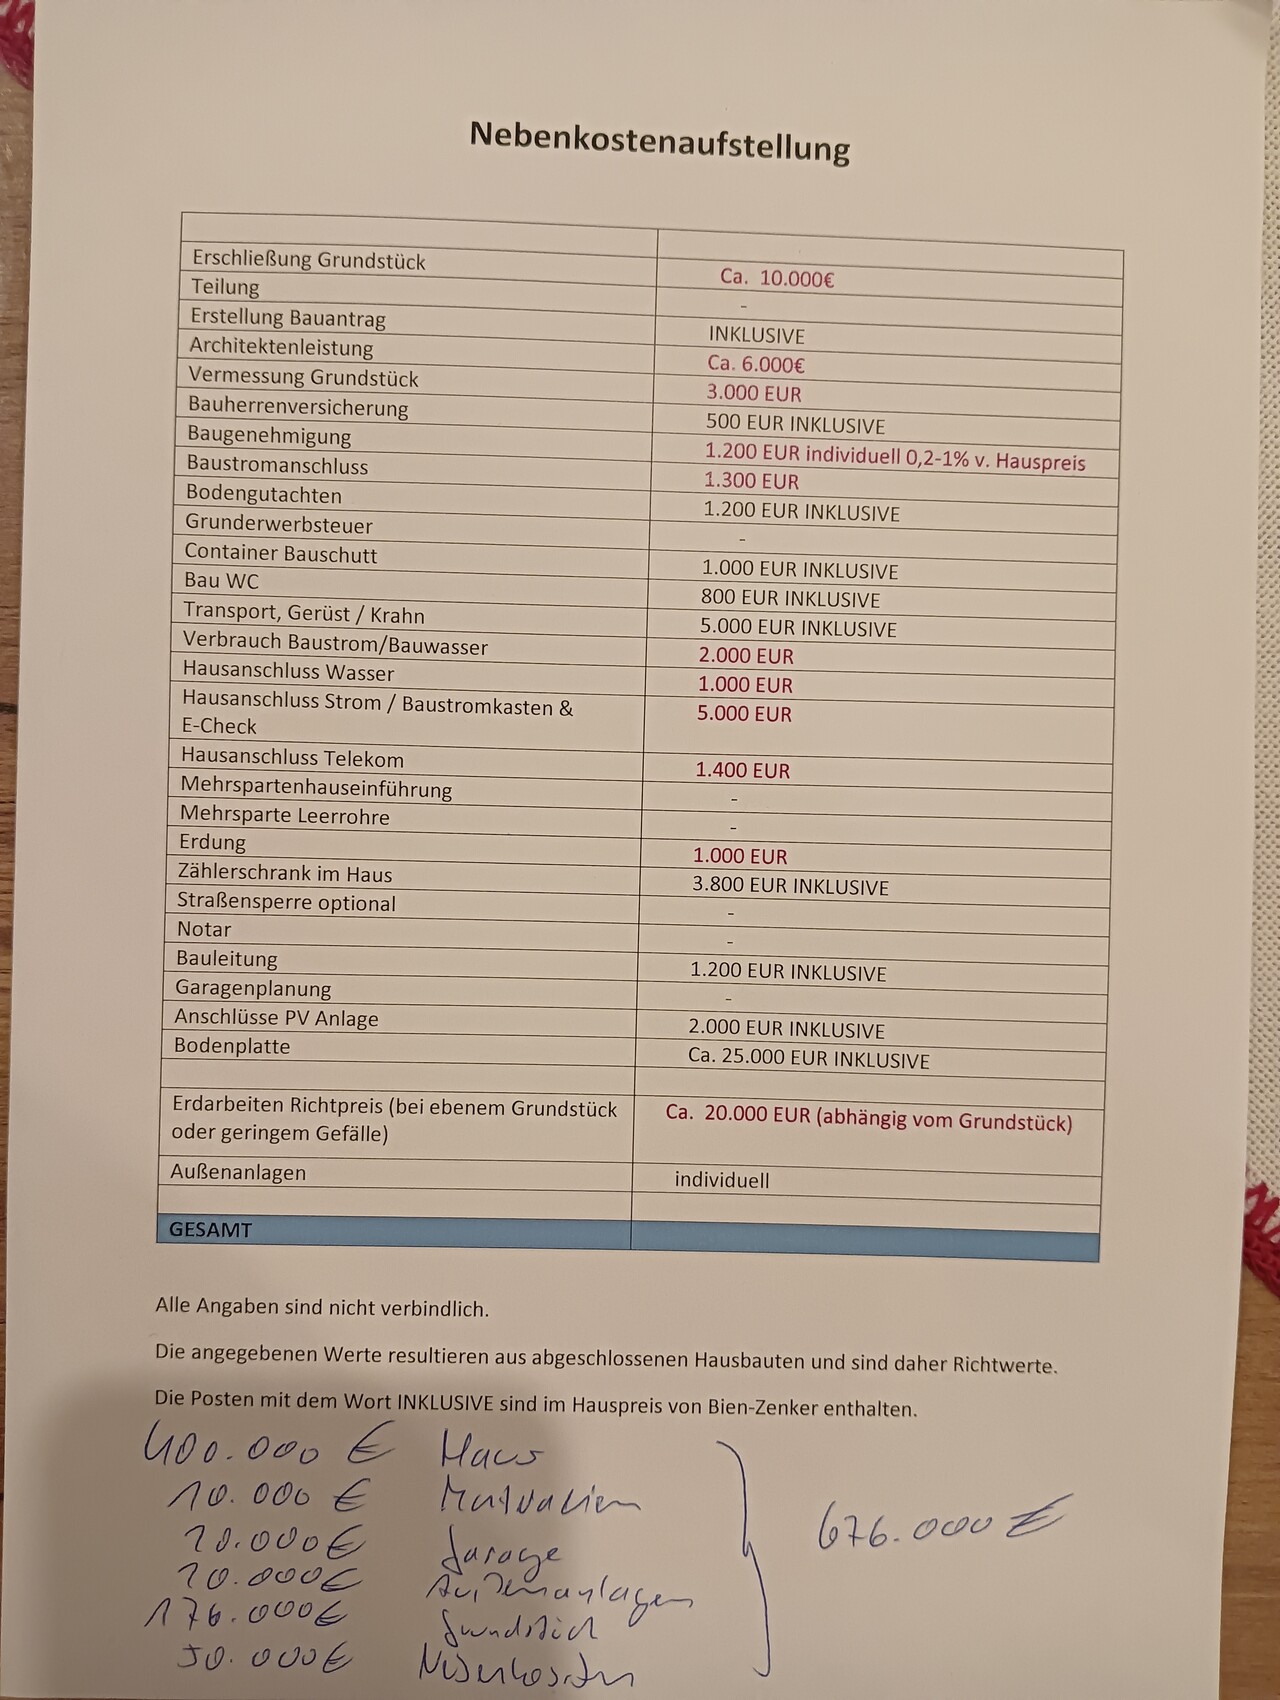 Nebenkostenaufstellung
Erschließung Grundstück Ca. 10.000€
Teilung -
Erstellung Bauantrag INKLUSIVE
Architektenleistung Ca. 6.000€
Vermessung Grundstück 3.000 EUR
Bauherrenversicherung 500 EUR INKLUSIVE
Baugenehmigung 1.200 EUR individuell 0,2-1% v. Hauspreis
Baustromanschluss 1.300 EUR
Bodengutachten 1.200 EUR INKLUSIVE
Grunderwerbsteuer -
Container Bauschutt 1.000 EUR INKLUSIVE
Bau WC 800 EUR INKLUSIVE
Transport, Gerüst / Krahn 5.000 EUR INKLUSIVE
Verbrauch Baustrom/Bauwasser 2.000 EUR
Hausanschluss Wasser 1.000 EUR
Hausanschluss Strom / Baustromkasten & 5.000 EUR
E-Check
Hausanschluss Telekom 1.400 EUR
Mehrspartenhauseinführung -
Mehrsparte Leerrohre -
Erdung 1.000 EUR
Zählerschrank im Haus 3.800 EUR INKLUSIVE
Straßensperre optional -
Notar -
Bauleitung 1.200 EUR INKLUSIVE
Garagenplanung -
Anschlüsse PV Anlage 2.000 EUR INKLUSIVE
Bodenplatte Ca. 25.000 EUR INKLUSIVE
Erdarbeiten Richtpreis (bei ebenem Grundstück Ca. 20.000 EUR (abhängig vom Grundstück)
oder geringem Gefälle)
Außenanlagen individuell
GESAMT
Alle Angaben sind nicht verbindlich.
Die angegebenen Werte resultieren aus abgeschlossenen Hausbauten und sind daher Richtwerte.
Die Posten mit dem Wort INKLUSIVE sind im Hauspreis von Bien-Zenker enthalten.
400.000 € Haus
10.000 €
20.000€ Garage
20.000€ Außenanlagen
176.000€ Grundstück
50.000€ Nebenkosten
676.000 €